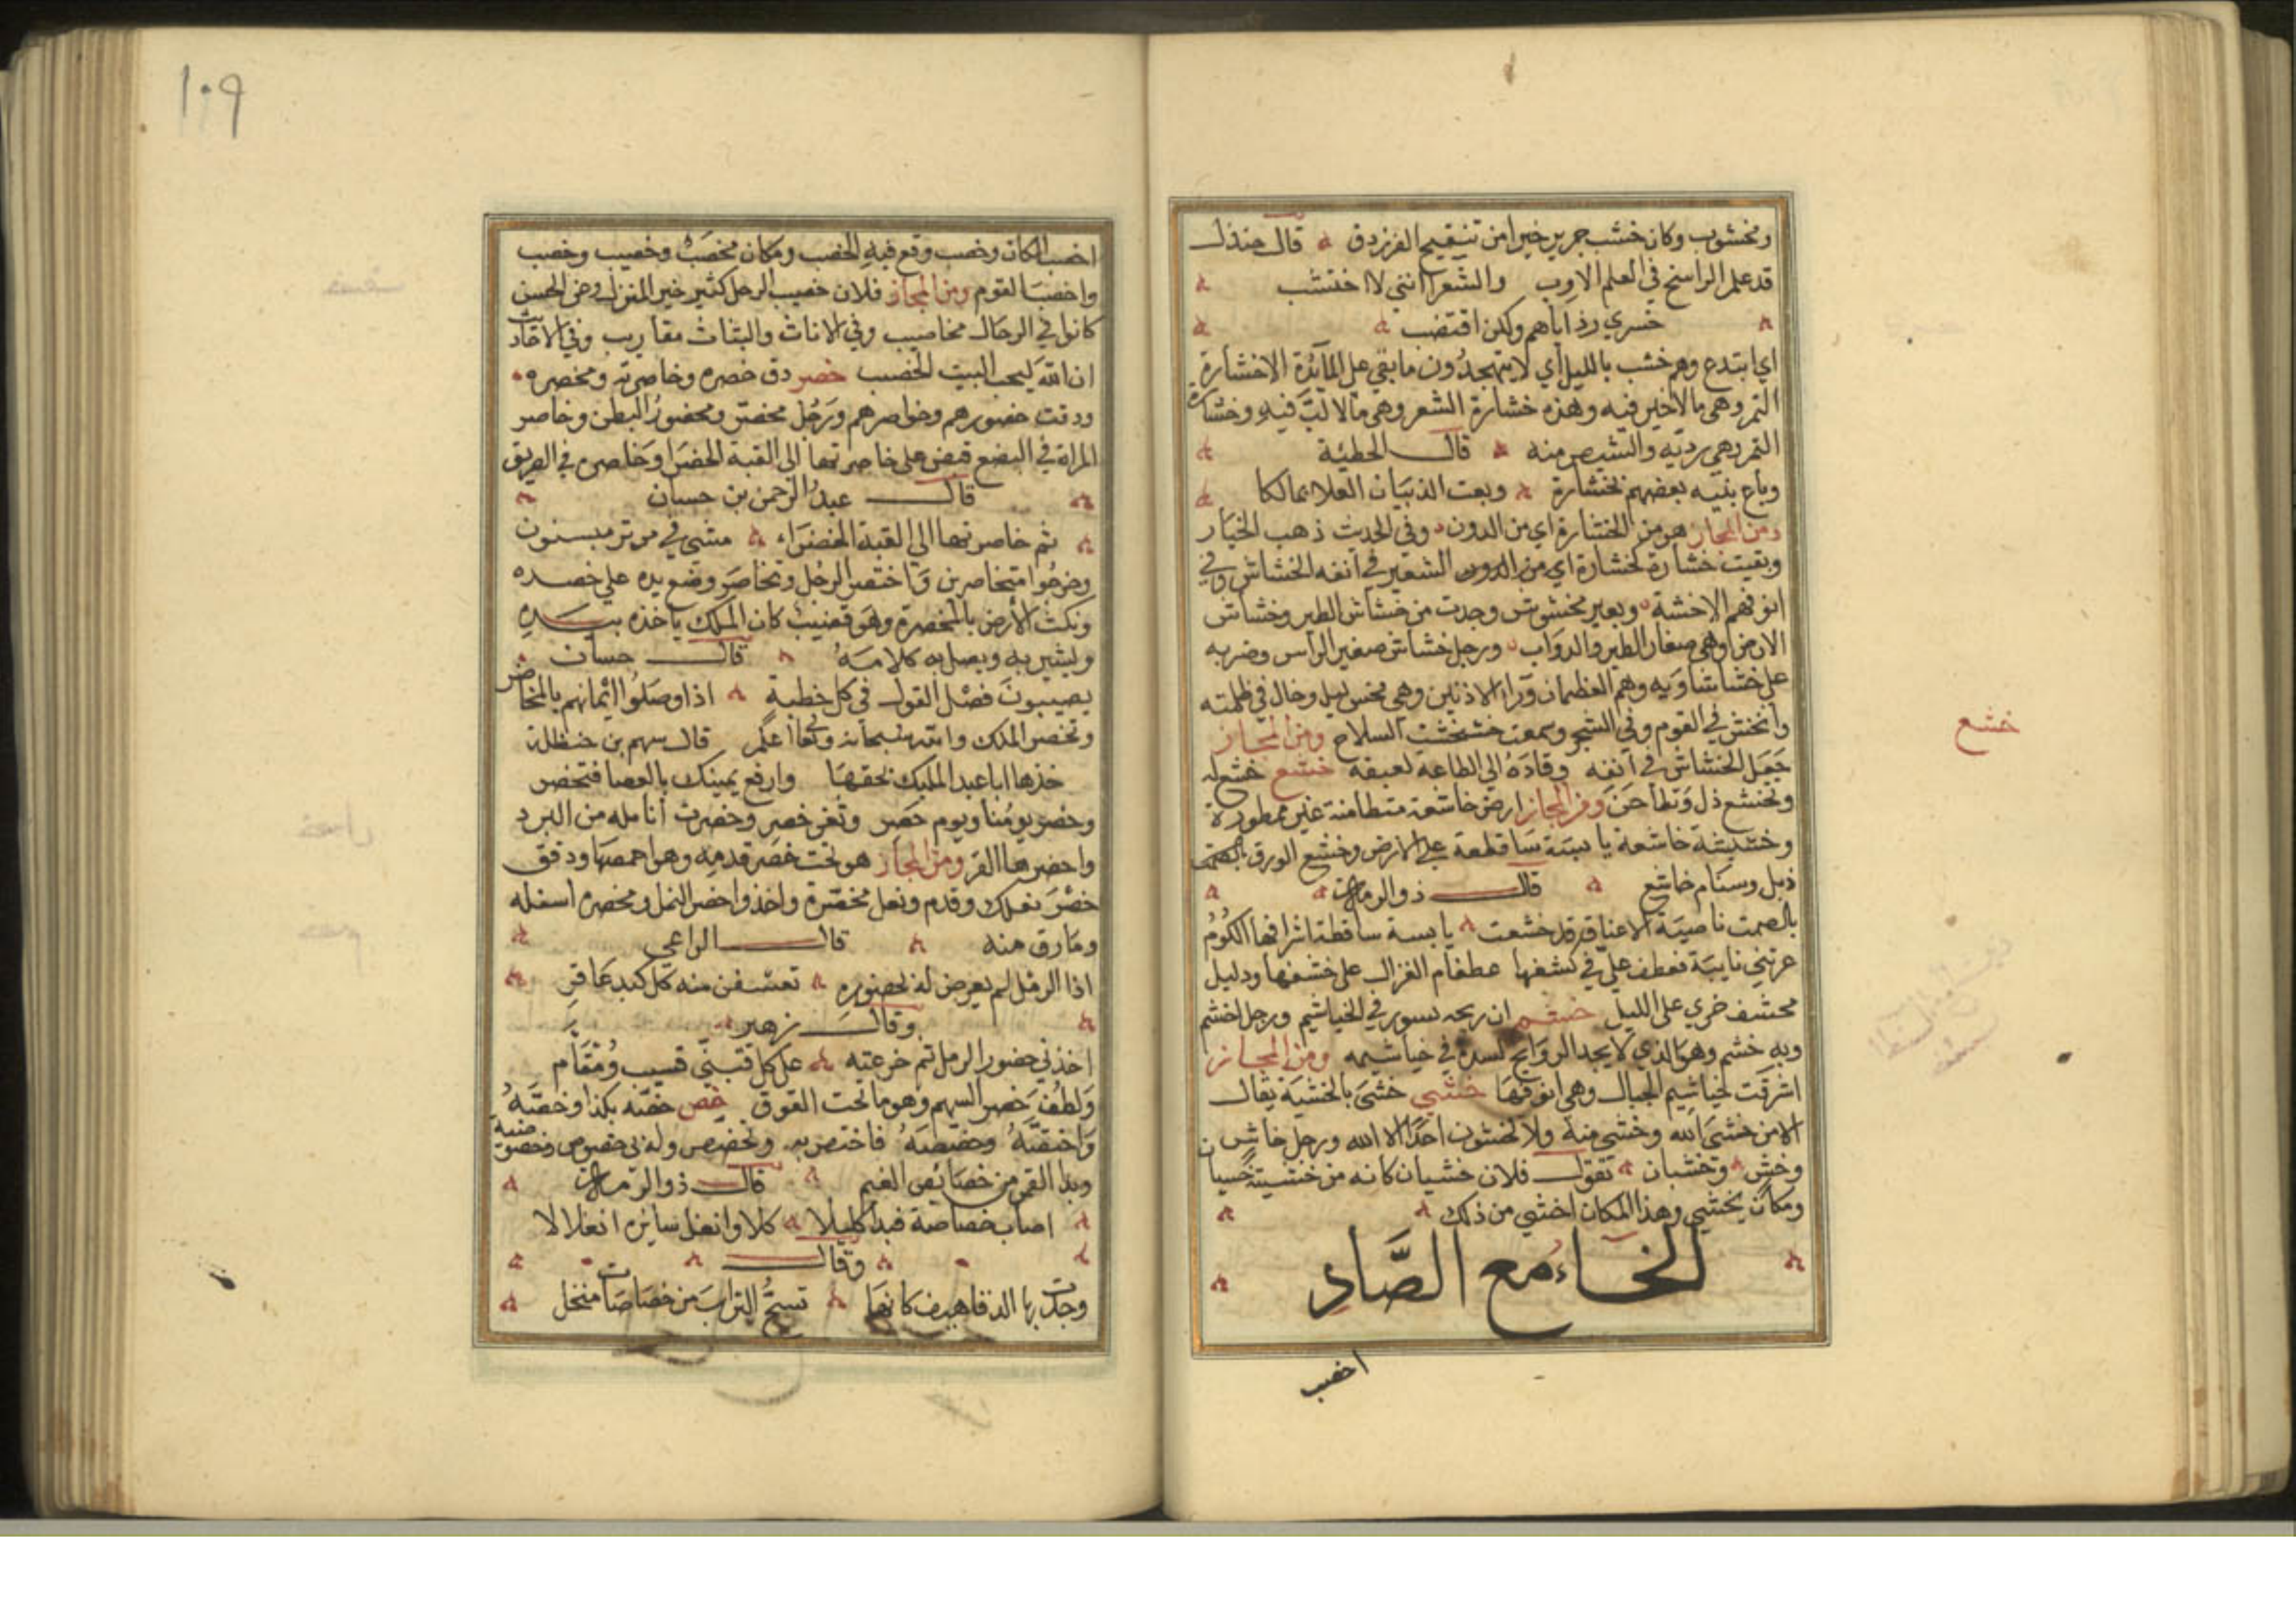 ومخشوب وكان خشب جرير خيرا من تنقيح الفرزدق قال جندل
قد علم الراسخ في العلم الارب والشعرا انني لا اختشب
خسري رذاياهم ولكن اقتضب
اي ابتدع وهم خشب بالليل اي لا يتهجدون ما بقي على المائدة الا خشارة
التمر وهي ما لا خير فيه وهذه خشارة الشعر وهي ما لا لب فيه وخشارة
التمر وهي رديه والشيص منه قال الحطيئة
وباع بنيه بعضهم بخشارة وبعت الذبيان العلا بمالكا
ومن المجاز هو من الخشارة اي من الدون وفي الحديث ذهب الخيار
وبقيت خشارة كخشارة اي من الدون الشعير في انفه الخشاش وفي
انوفهم الاخشة وبعير مخشوش وجدت من خشاش الطير وخشاش
الارض وهي صغار الطير والدواب ورجل خشاش صغير الراس وضربه
على خششاويه وهم العظمان وراء الاذنين وهي مخش ليل دخال في ظلمته
وانخش في القوم وفي الشجر وسمعت خشخشت السلاح ومن المجاز
جعل الخشاش في انفه وقاده الى الطاعة لعبقه خشع خشع له
وتخشع ذل وتطأحن ومن المجاز ارض خاشعة متطامنة غير ممطورة
وخشبشة خاشعة يابسة ساقطة على الارض وخشع الورق
ذبل وسنام خاشع قال ذو الرمة
بالصمت ناصية الاعناق قد خشعت يابسة ساقطة اشرافها الكوم
عرتني نايبة فعطف علي في كشفها عطفام الغزال على خشفها ودليل
مخشف جري على الليل خشم ان ريحه لسور في الخياشيم ورجل اخشم
وبه خشم وهو الذي لا يجد الروايح لسدة في خياشيمه ومن المجاز
اشرقت خياشيم الجبال وهي انوفها خشي خشي بالخشية يقال
الا من خشي الله وخشي منه ولا تخشون احدا الا الله ورجل خاش
وخش وخشيان تقول فلان خشيان كانه من خشيته خسيان
ومكان يخشى وهذا المكان اخشى من ذلك
الخاء مع الصاد
اخصب
خشع
١٠٩
اخصب المكان وخصب وقع فيه الخصب ومكان مخصب وخصيب وخصب
واخصب القوم ومن المجاز فلان خصيب الرجل كثير خير المنزل وعن الحسن
كانوا في الرحال مخاصيب وفي الاناث والبتات مقاريب وفي الاحاديث
ان الله ليحب البيت الخصب خصر دق خصره وخاصرته ومخصره
ودقت خصورهم وخواصرهم ورجل مخصر ومخصور البطن وخاصر
المراة في البضع قبض على خاصرتها الى القبة الخضرا وخاصره في الطريق
قال عبد الرحمن بن حسان
ثم خاصرتها الى القبة الخضراء مشي في مرمر مسنون
وخرجوا متخاصرين واختصر الرجل وتخاصر وضع يده على خصره
ونكت الارض بالمخصرة وهو قضيب كان الملك ياخذه بيده
وليشير به ويصل به كلامه قال حسان
يصيبون فصل القول في كل خطبة اذا وصلوا ايمانهم بالمخاصر
وتخصر الملك والله سبحانه وتعالى اعلم قال سهم بن حنظلة
خذها ابا عبد المليك بحقها وارفع يمينك بالعصا فتخصر
وخصر يومنا ويوم خصر وثغر خصر وخصرت انامله من البرد
واخصرها القر ومن المجاز هو تحت خصر قدمه وهو اخمصها ودقق
خصر نعلك وقدم ونعل مخصرة واخذوا خصر النمل ومخصره اسفله
وما رق منه قال الراعي
اذا الرمل لم يعرض له بخصوره تعسفن منه كل كبد عاقر
وقال زهير
اخذني خصور الرمل ثم خرعته على كل قتبني قسيب ومفام
ولطف خصر السهم وهو ما تحت الفوق خص خصه بكذا وخصه
واختصه وخصصه فاختص به وتخصص وله بي خصوص وخصوصية
وبدا القمر من خصائص الغيم قال ذو الرمة
اصاب خصاصة فبدا كليلا كلا وانغل سائره انغلالا
وقال
وجدت بها الدفاهيف كانها تسح التراب من خصاصات منخل